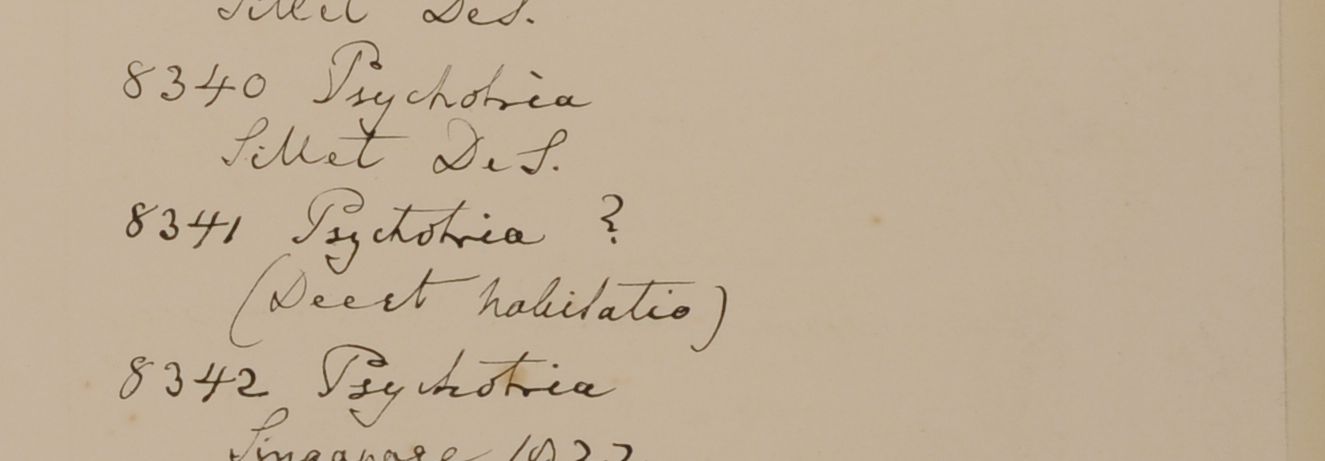 Sillet DeS.
8340 Psychotria
Sillet DeS.
8341 Psychotria ?
(Deest habitatio)
8342 Psychotria
Singapore 1822